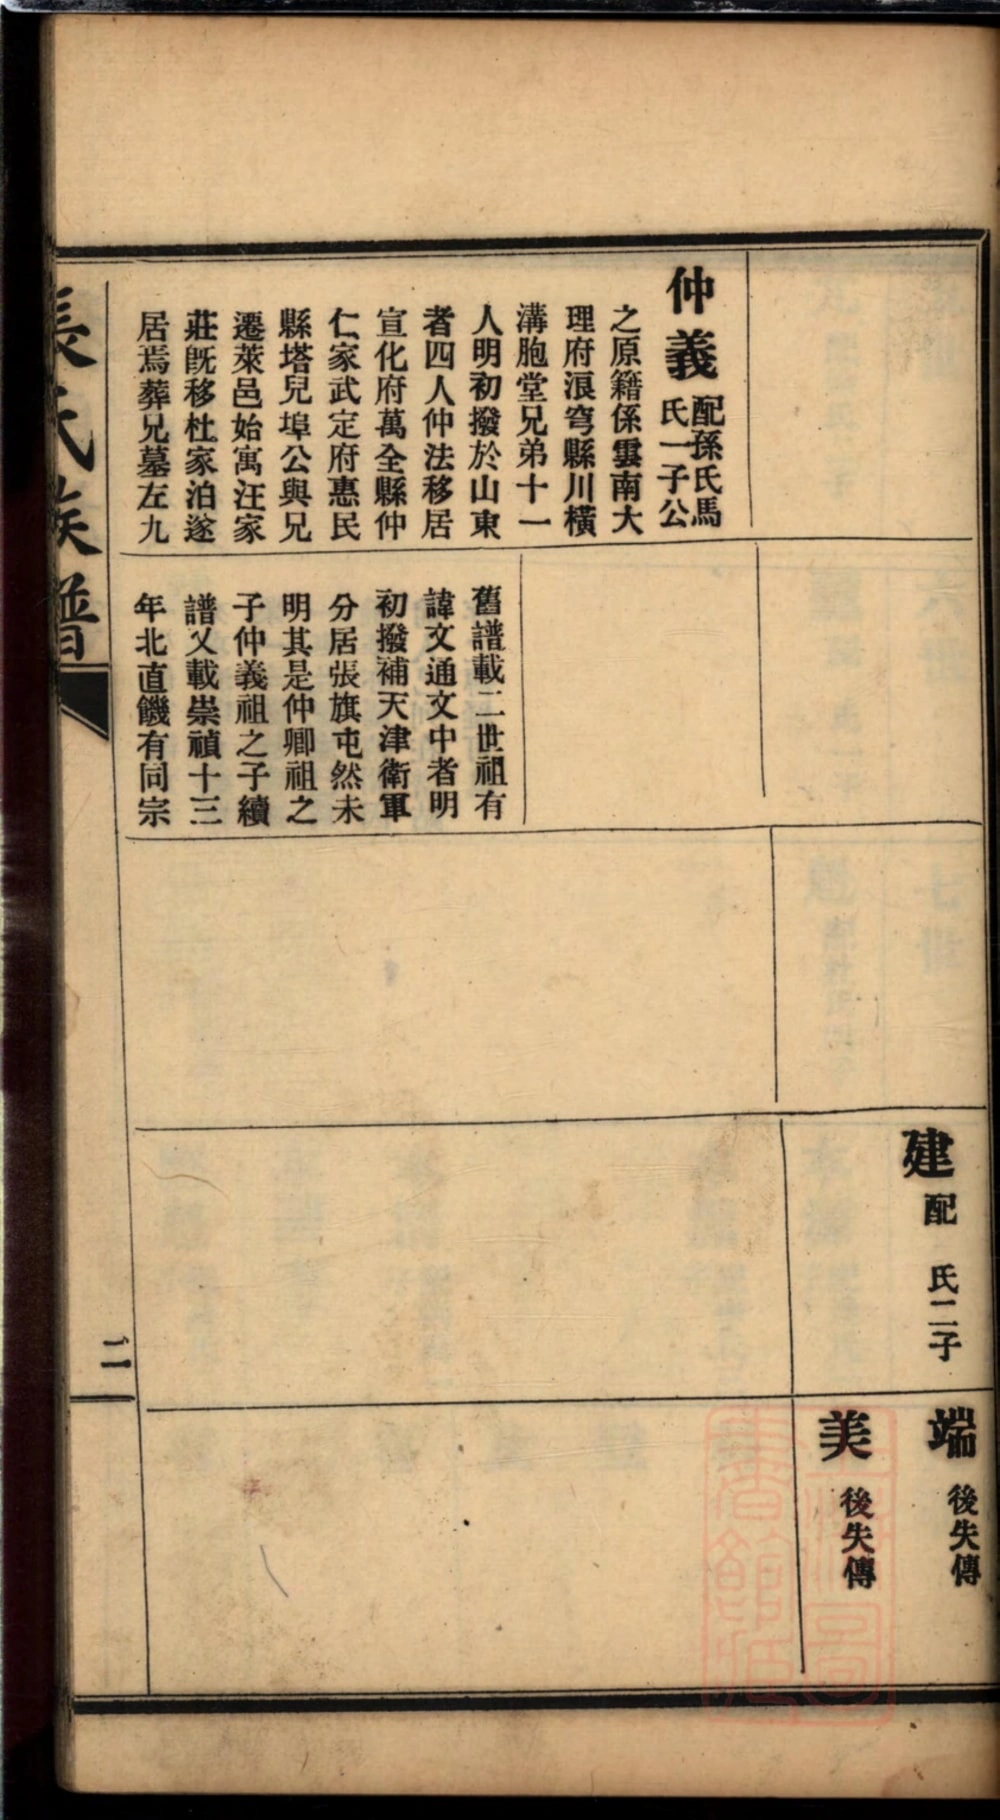 仲義
配孫氏馬
氏一子公
之原籍係雲南大
理府浪穹縣川橫
溝胞堂兄弟十一
人明初撥於山東
者四人仲法移居
宣化府萬全縣仲
仁家武定府惠民
縣塔兒埠公與兄
遷萊邑始寓汪家
莊旣移杜家泊遂
居焉葬兄墓左九
舊譜載二世祖有
諱文通文中者明
初撥補天津衛軍
分居張旗屯然未
明其是仲卿祖之
子仲義祖之子續
譜又載崇禎十三
年北直饑有同宗
建
配　氏二子
端
後失傳
美
後失傳
長氏族譜
二